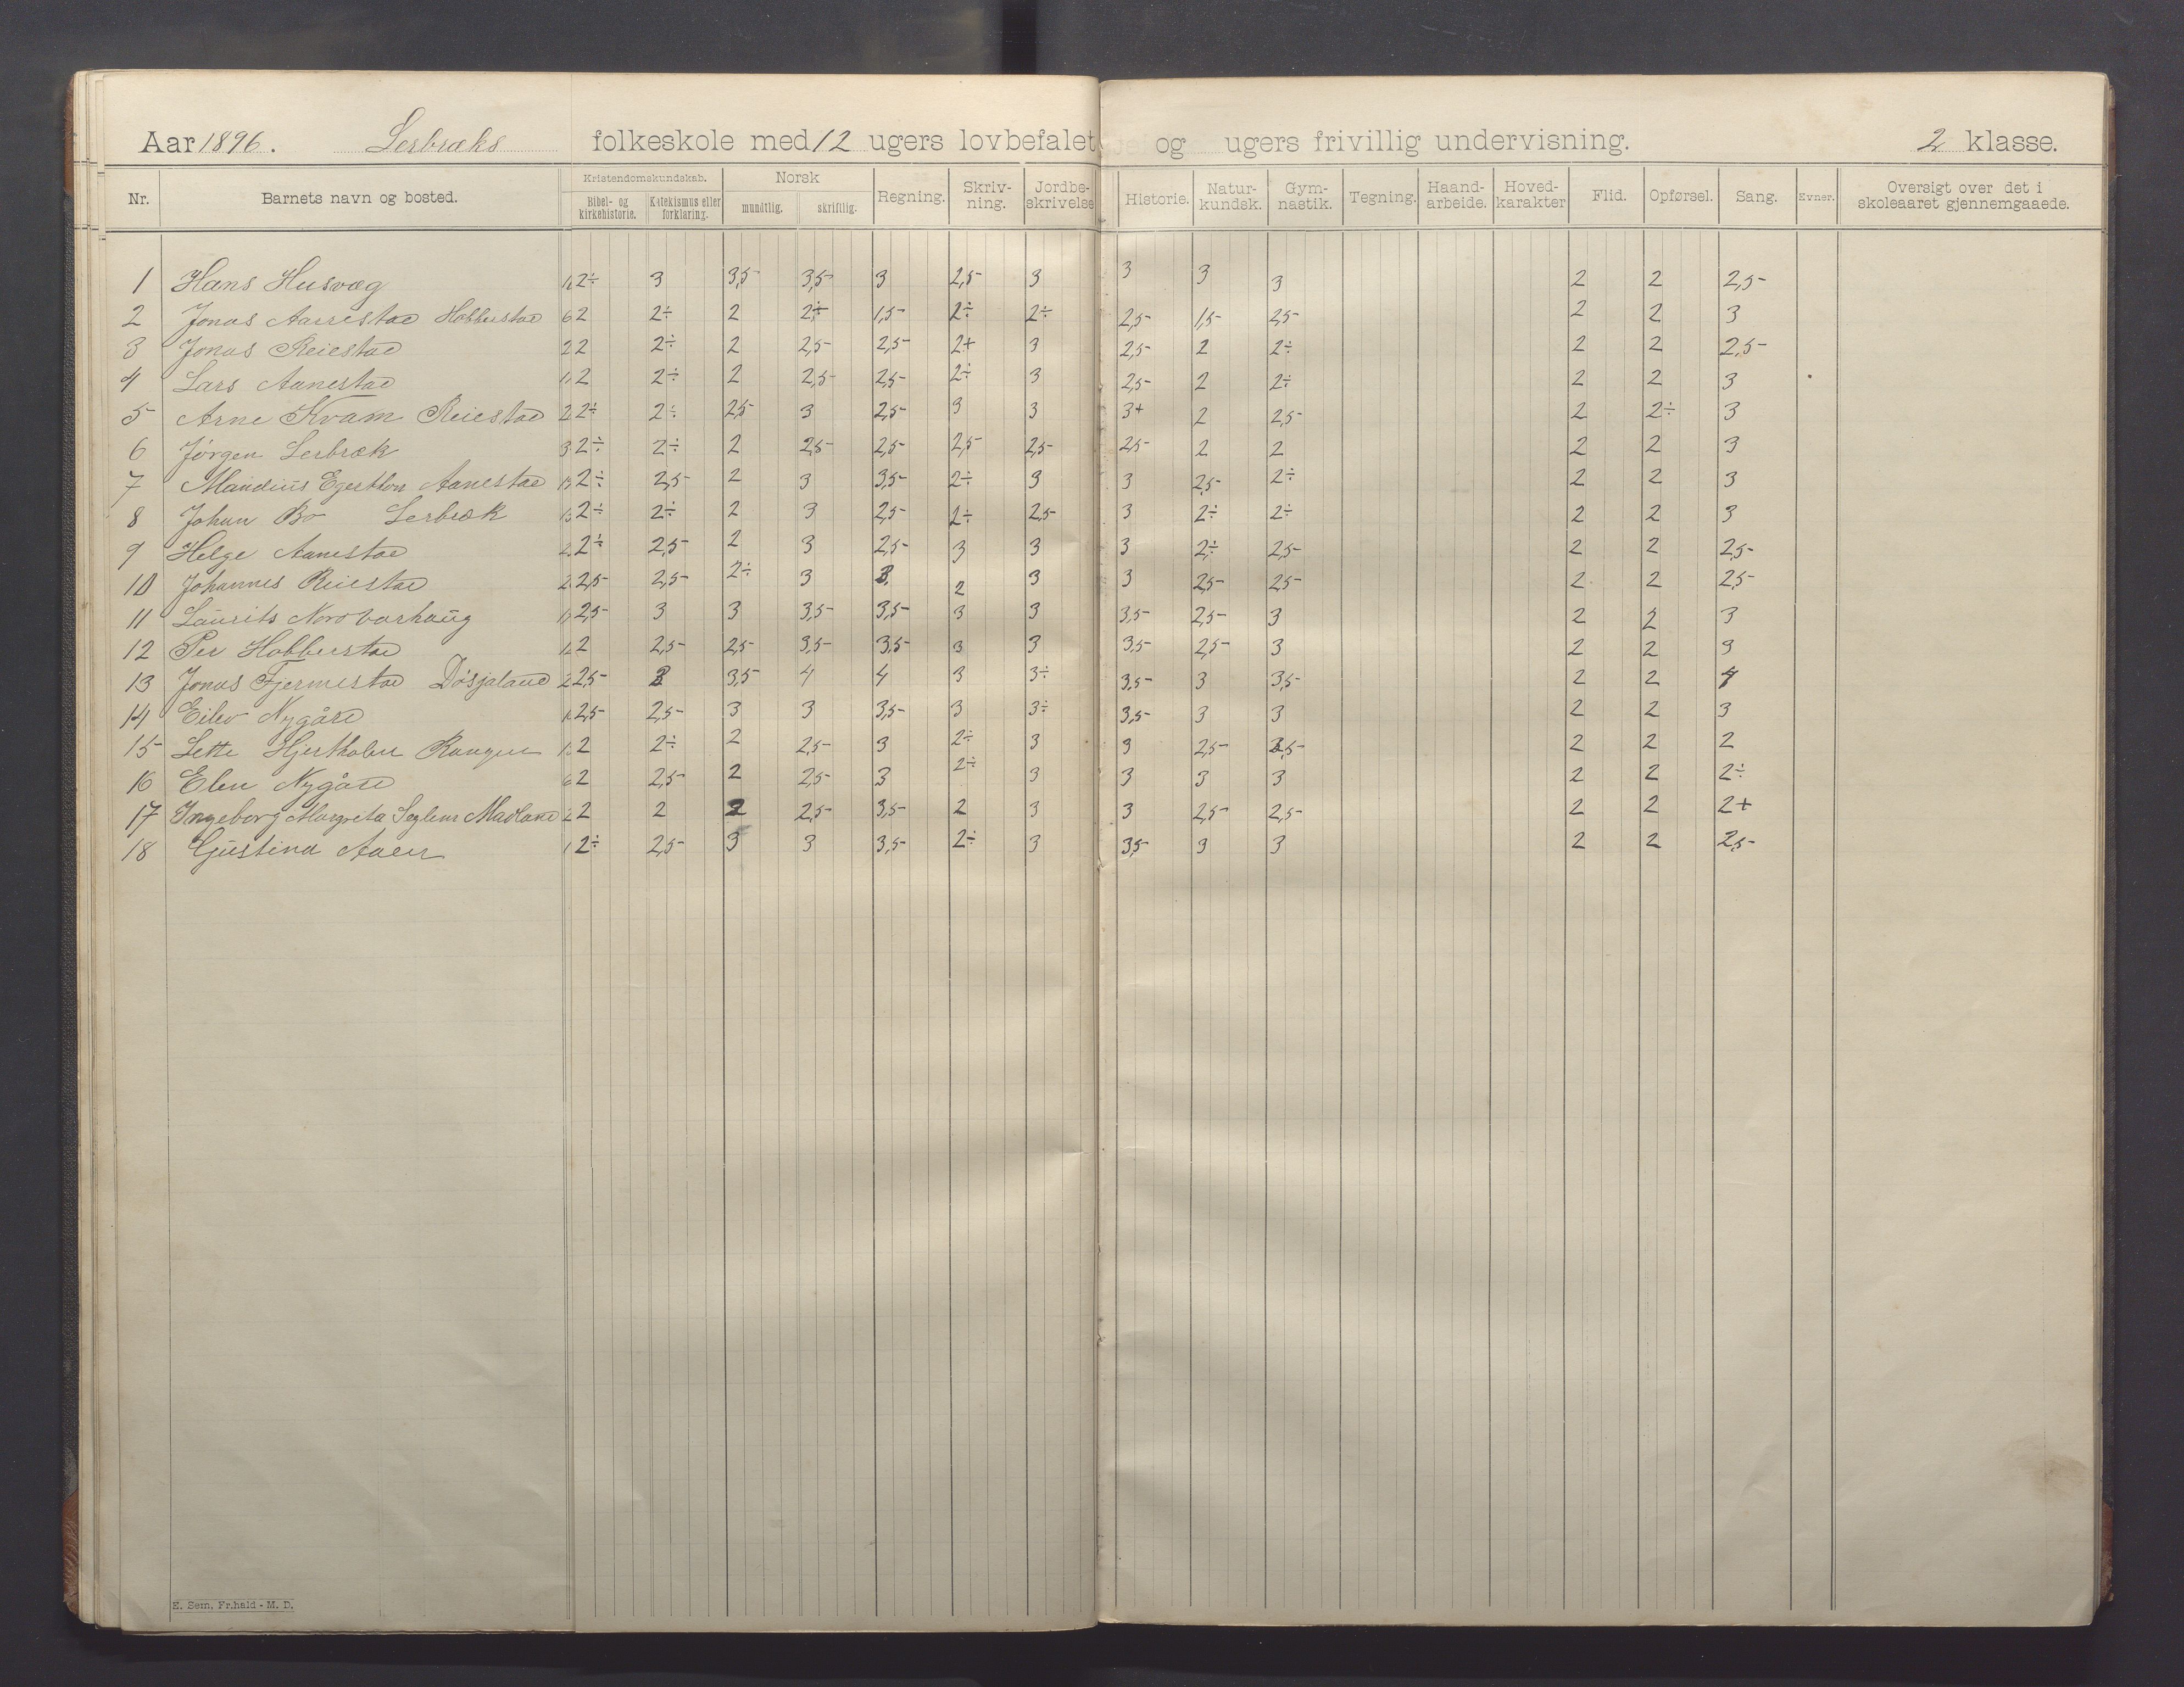 Aar 1896. Lerbræks folkeskole med 12 ugers lovbefalet og ugers frivillig undervisning. 2 klasse.
Nr. Barnets navn og bosted. Kristendomskundskab. Bibel- og kirkehistorie. Katekismus eller forklaring. Norsk mundtlig. skriftlig. Regning. Skriv-ning. Jordbe-skrivelse Historie. Natur-kundsk. Gym-nastik. Tegning. Haand-arbeide. Hoved-karakter Flid. Opførsel. Sang. Evner. Oversigt over det i skoleaaret gjennemgaaede.
1 Hans Husvæg 2÷ 3 3,5 3,5 3 2,5 3 3 3 3 2 2 2,5
2 Jonas Aarrestad Hobberstad 2 2÷ 2 2÷ 1,5 2÷ 2÷ 2,5 1,5 2,5 2 2 3
3 Jonas Reiestad 2 2÷ 2 2,5 2,5 2+ 3 2,5 2 2÷ 2 2 2,5
4 Lars Aanestad 2 2÷ 2 2,5 2,5 2÷ 3 2,5 2 2÷ 2 2 3
5 Arne Kvam Reiestad 2÷ 2÷ 2,5 3 2,5 3 3 3+ 2 2,5 2 2÷ 3
6 Jørgen Lerbræk 2÷ 2÷ 2 2,5 2,5 2,5 2,5 2,5 2 2 2 2 3
7 Mandius Aanestad 2÷ 2,5 2 3 3,5 2÷ 3 3 2,5 2÷ 2 2 3
8 Johan Bø Lerbræk 2÷ 2÷ 2 3 2,5 2÷ 2,5 3 2÷ 2÷ 2 2 3
9 Helge Aanestad 2÷ 2,5 2 3 2,5 3 3 3 2÷ 2,5 2 2 2,5
10 Johannes Reiestad 2,5 2,5 2÷ 3 3 2 3 3 2,5 2,5 2 2 2,5
11 Laurits Nord Varhaug 2,5 3 3 3,5 3,5 3 3 3,5 2,5 3 2 2 3
12 Per Hobberstad 2 2,5 2,5 3,5 3,5 3 3 3,5 2,5 3 2 2 3
13 Jonas Fjermestad Døsjaland 2,5 3 3,5 4 4 3 3÷ 3,5 3 3,5 2 2 4
14 Eilev Nygård 2,5 2,5 3 3 3,5 3 3÷ 3,5 3 3 2 2 3
15 Lette Hjertholm 2 2÷ 2 2,5 3 2÷ 3 3 2,5 2,5 2 2 2
16 Elen Nygård 2 2,5 2 2,5 3 2÷ 3 3 3 3 2 2 2÷
17 Ingeborg Margreta Madland 2 2 2 2,5 3,5 2 3 3 2,5 2,5 2 2 2+
18 Gustina Aaen 2÷ 2,5 3 3 3,5 2÷ 3 3,5 3 3 2 2 2,5
E. Sem, Fr.hald - M. D.